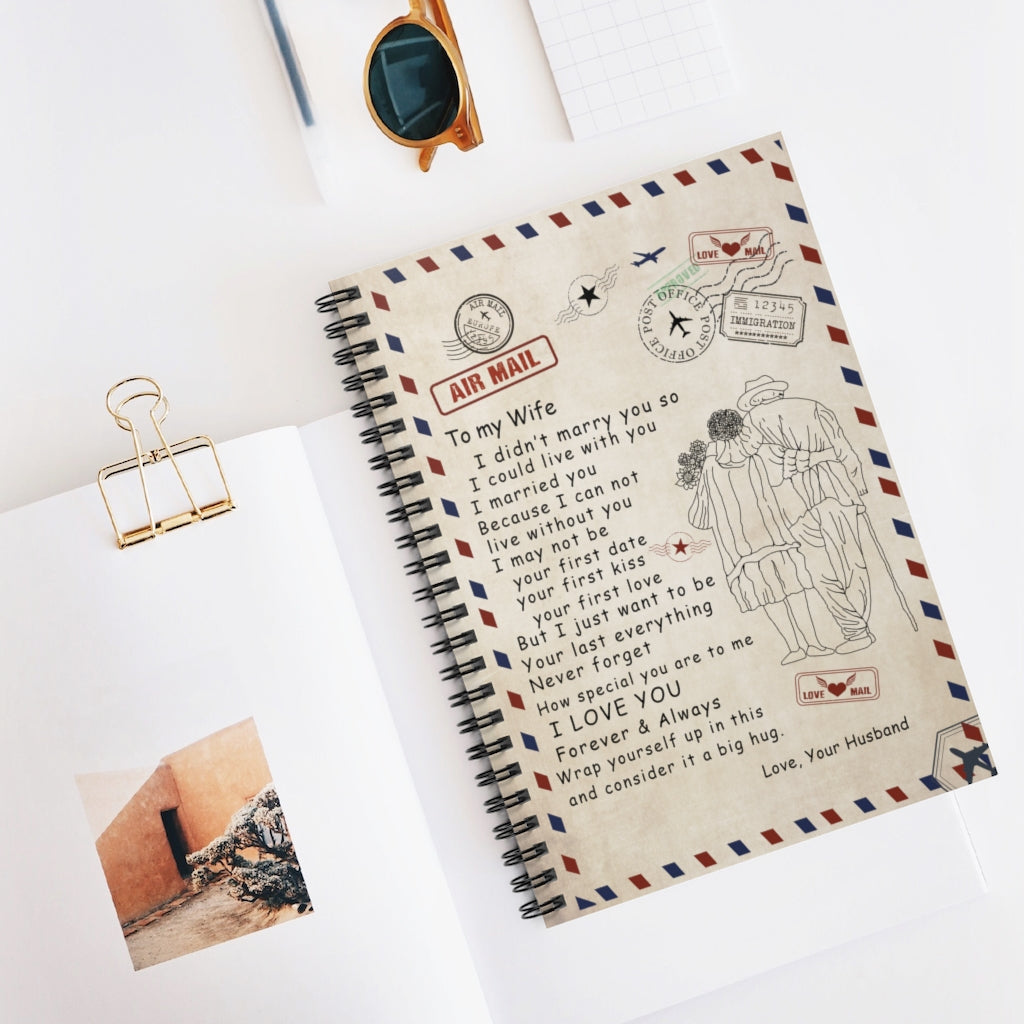 LOVE MAIL
APPROVED
AIR MAIL
EUROPE
POST OFFICE POST OFFICE
12345
IMMIGRATION
AIR MAIL
To my Wife
I didn't marry you so
I could live with you
I married you
Because I can not
live without you
I may not be
your first date
your first kiss
your first love
But I just want to be
Your last everything
Never forget
How special you are to me
I LOVE YOU
Forever & Always
Wrap yourself up in this
and consider it a big hug.
Love, Your Husband
LOVE MAIL